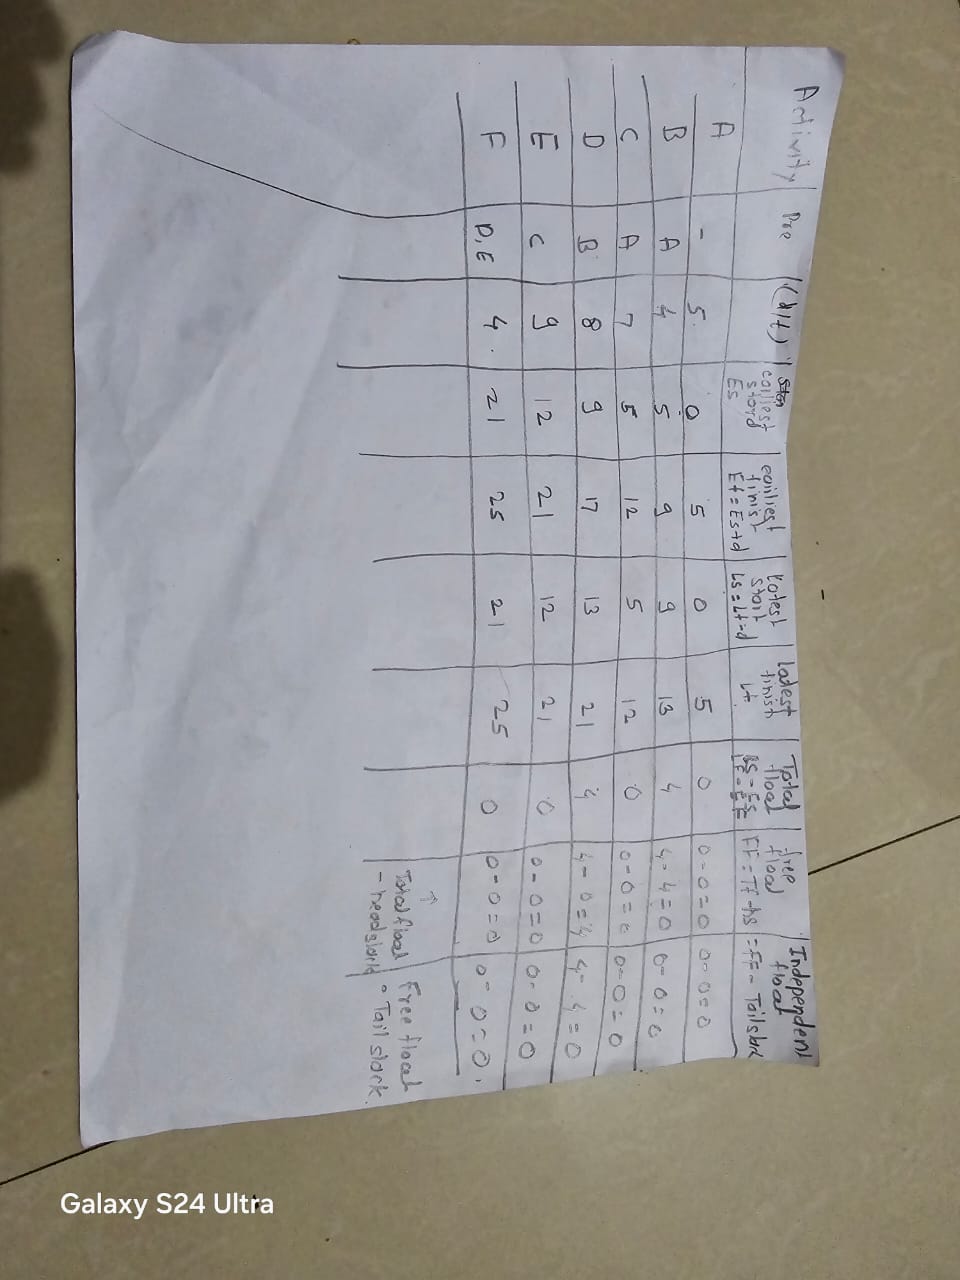 Activity Pre (d/t) earliest start Es earliest finist Ef = Es+d Latest start Ls = Lf-d Latest finist Lf Total float LS - ES LF - EF free float FF = TF - hs Independent float = FF - Tail slack
A - 5 0 5 0 5 0 0-0=0 0-0=0
B A 4 5 9 9 13 4 4-4=0 0-0=0
C A 7 5 12 5 12 0 0-0=0 0-0=0
D B 8 9 17 13 21 4 4-0=4 4-4=0
E C 9 12 21 12 21 0 0-0=0 0-0=0
F D,E 4 21 25 21 25 0 0-0=0 0-0=0
↑
Total float Free float
- head slack - Tail slack.
Galaxy S24 Ultra